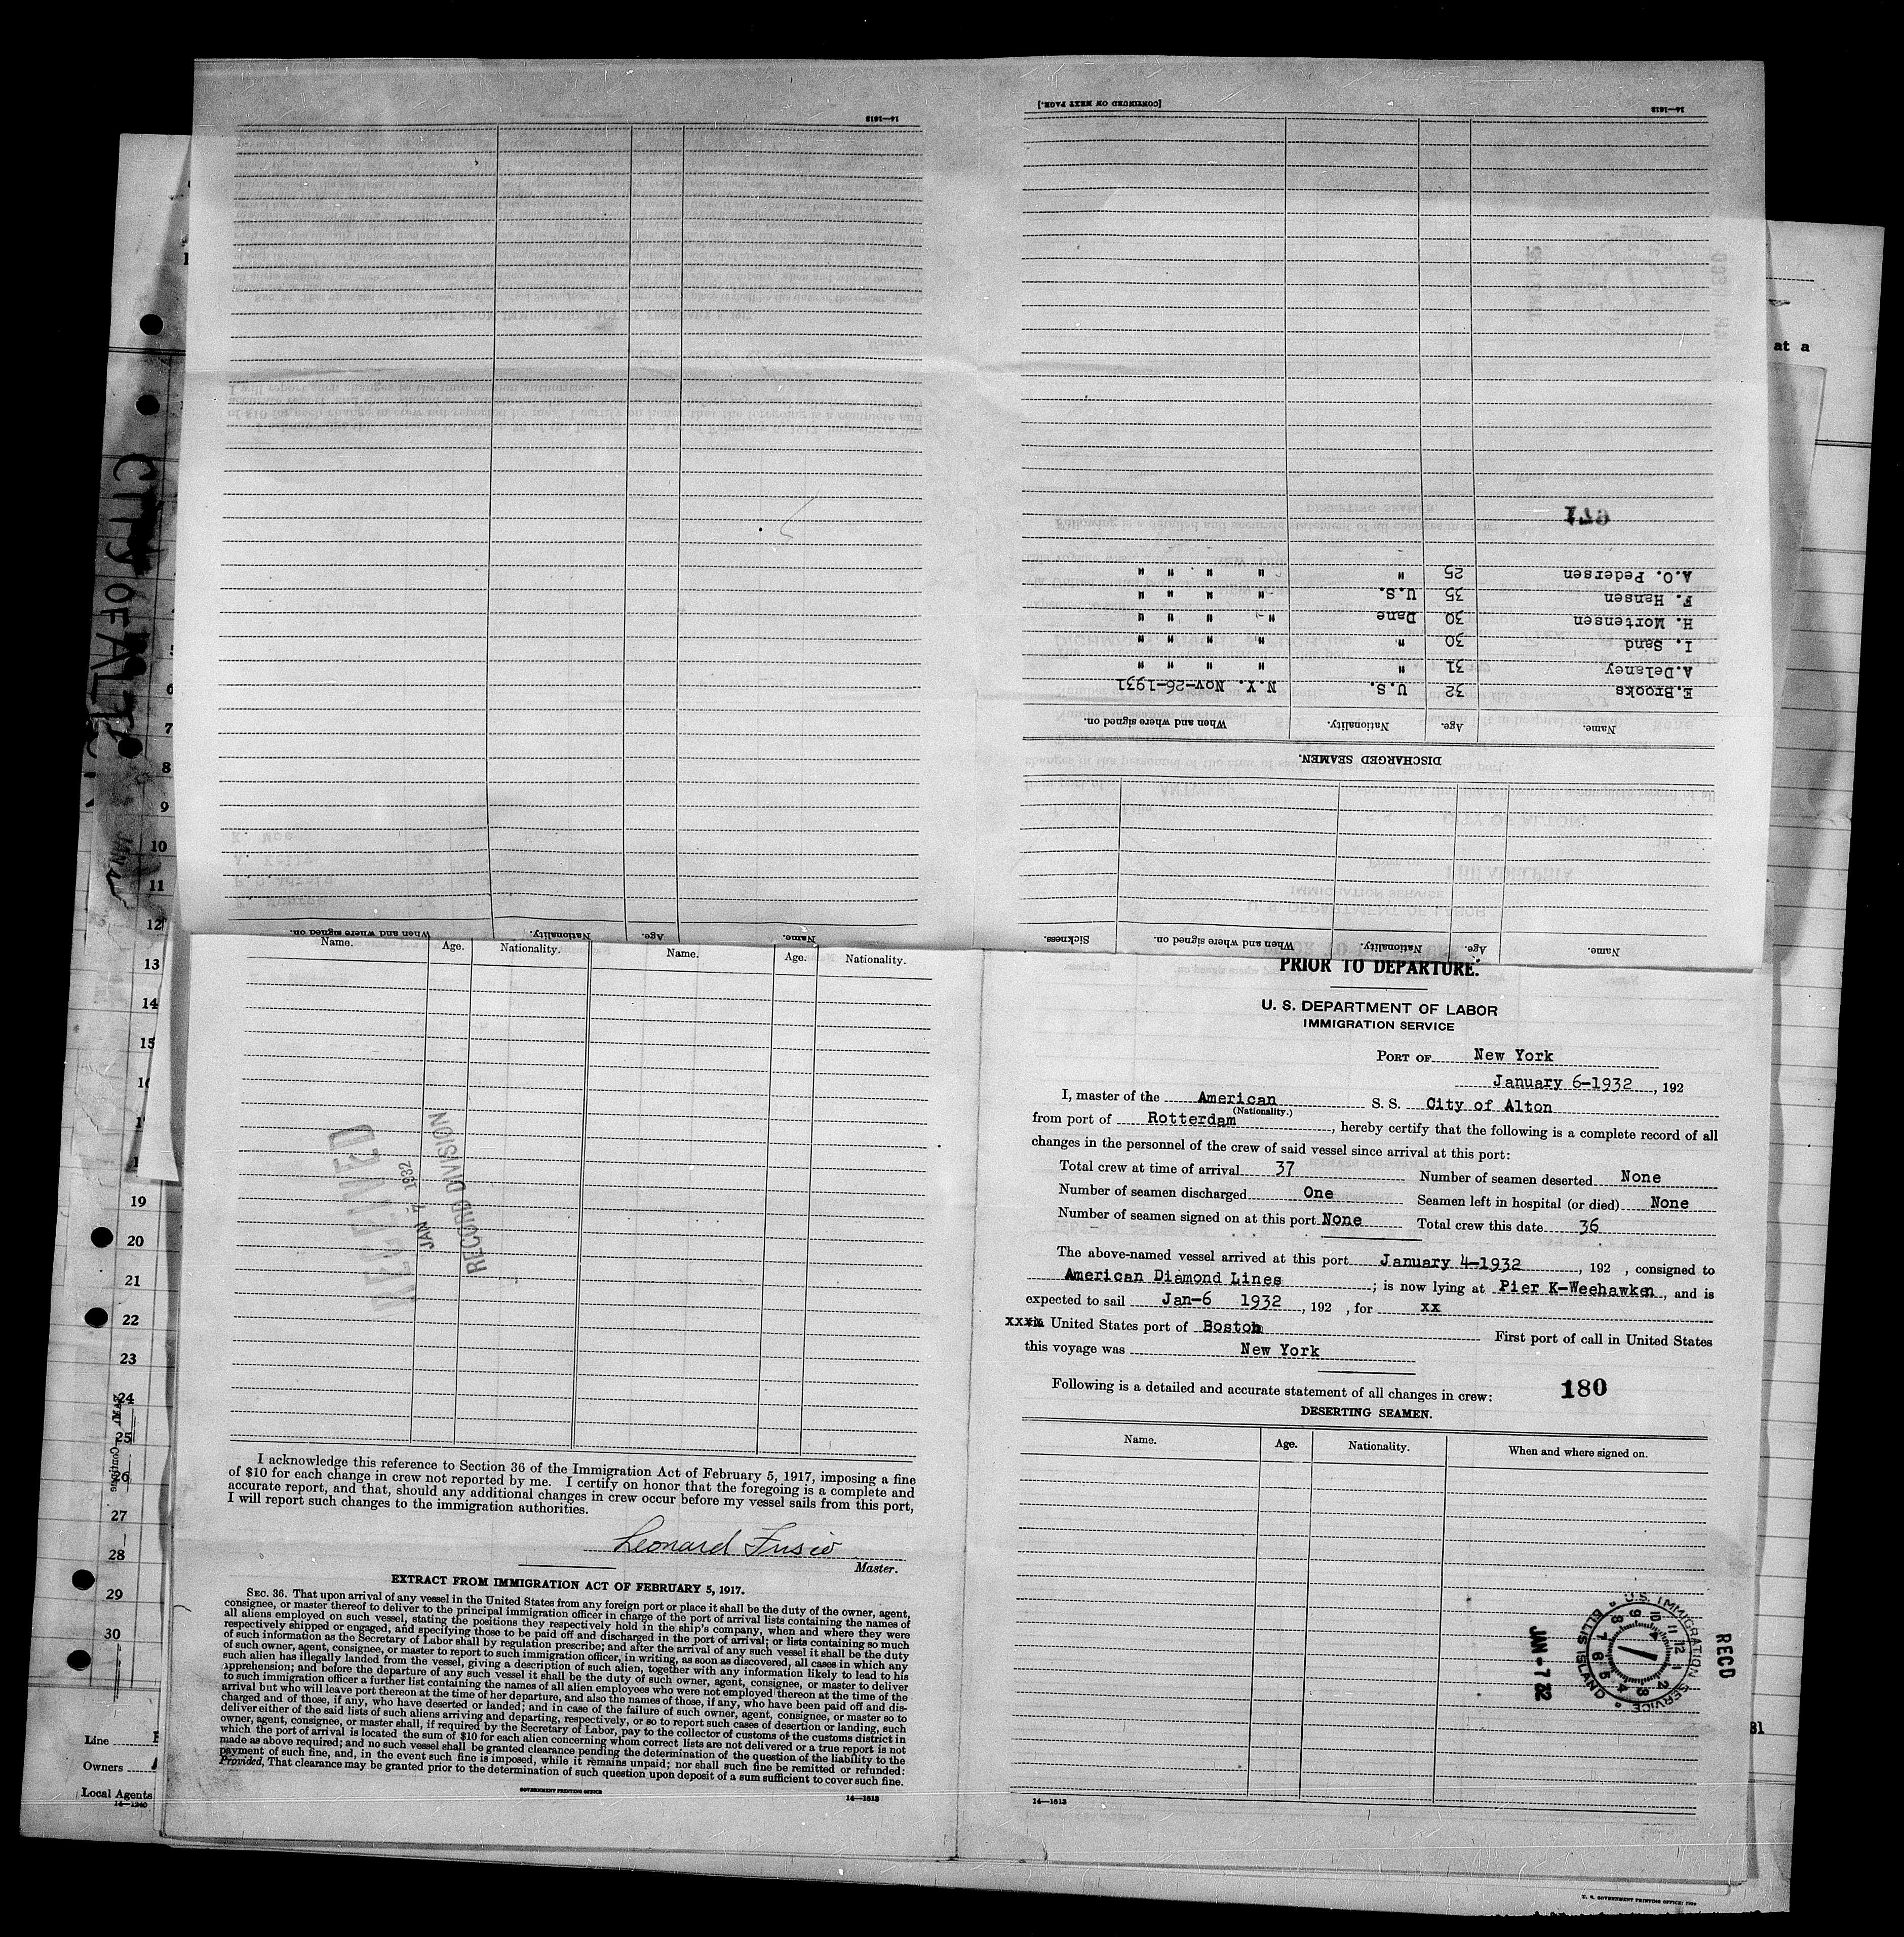 [CONTINUED ON NEXT PAGE.]
14—1613
14—1613
179
A.O. Pedersen 25 " " " " "
F. Hansen 35 U.S. " " " "
H. Mortensen 30 Dane " " " "
I. Sand 30 " " " " "
A.Delaney 31 " " " " "
E.Brooks 32 U.S. N.Y. Nov-26-1931
Name. Age. Nationality. When and where signed on.
DISCHARGED SEAMEN.
Name. Age. Nationality. When and where signed on. Sickness.
Name. Age. Nationality. When and where signed on.
Name. Age. Nationality. Name. Age. Nationality.
RECEIVED
JAN 7 1932
RECORD DIVISION
I acknowledge this reference to Section 36 of the Immigration Act of February 5, 1917, imposing a fine
of $10 for each change in crew not reported by me. I certify on honor that the foregoing is a complete and
accurate report, and that, should any additional changes in crew occur before my vessel sails from this port,
I will report such changes to the immigration authorities.
Leonard Fusio
Master.
EXTRACT FROM IMMIGRATION ACT OF FEBRUARY 5, 1917.
SEC. 36. That upon arrival of any vessel in the United States from any foreign port or place it shall be the duty of the owner, agent,
consignee, or master thereof to deliver to the principal immigration officer in charge of the port of arrival lists containing the names of
all aliens employed on such vessel, stating the positions they respectively hold in the ship's company, when and where they were
respectively shipped or engaged, and specifying those to be paid off and discharged in the port of arrival; or lists containing so much
of such information as the Secretary of Labor shall by regulation prescribe; and after the arrival of any such vessel it shall be the duty
of such owner, agent, consignee, or master to report to such immigration officer, in writing, as soon as discovered, all cases in which any
such alien has illegally landed from the vessel, giving a description of such alien, together with any information likely to lead to his
apprehension; and before the departure of any such vessel it shall be the duty of such owner, agent, consignee, or master to deliver
to such immigration officer a further list containing the names of all alien employees who were not employed thereon at the time of the
arrival but who will leave port thereon at the time of her departure, and also the names of those, if any, who have been paid off and dis-
charged and of those, if any, who have deserted or landed; and in case of the failure of such owner, agent, consignee, or master so to
deliver either of the said lists of such aliens arriving and departing, respectively, or so to report such cases of desertion or landing, such
owner, agent, consignee, or master shall, if required by the Secretary of Labor, pay to the collector of customs of the customs district in
which the port of arrival is located the sum of $10 for each alien concerning whom correct lists are not delivered or a true report is not
made as above required; and no such vessel shall be granted clearance pending the determination of the question of the liability to the
payment of such fine, and, in the event such fine is imposed, while it remains unpaid; nor shall such fine be remitted or refunded:
Provided, That clearance may be granted prior to the determination of such question upon deposit of a sum sufficient to cover such fine.
GOVERNMENT PRINTING OFFICE
14—1613
PRIOR TO DEPARTURE.
U. S. DEPARTMENT OF LABOR
IMMIGRATION SERVICE
PORT OF New York
January 6-1932, 192
I, master of the American S. S. City of Alton
(Nationality.)
from port of Rotterdam, hereby certify that the following is a complete record of all
changes in the personnel of the crew of said vessel since arrival at this port:
Total crew at time of arrival 37 Number of seamen deserted None
Number of seamen discharged One Seamen left in hospital (or died) None
Number of seamen signed on at this port None Total crew this date 36
The above-named vessel arrived at this port January 4-1932, 192 , consigned to
American Diamond Lines; is now lying at Pier K-Weehawken, and is
expected to sail Jan-6 1932, 192 , for xx
xxxx United States port of Boston First port of call in United States
this voyage was New York
Following is a detailed and accurate statement of all changes in crew:
180
DESERTING SEAMEN.
Name. Age. Nationality. When and where signed on.
RECD
U.S. IMMIGRATION SERVICE
ELLIS ISLAND
JAN-7 32
14—1613
U. S. GOVERNMENT PRINTING OFFICE: 1929
at a
31
CITY OF ALTON
6
7
8
9
10
11
12
13
14
15
19
20
21
22
23
24
25
26
27
28
29
30
Line
Owners
Local Agents
14—1240